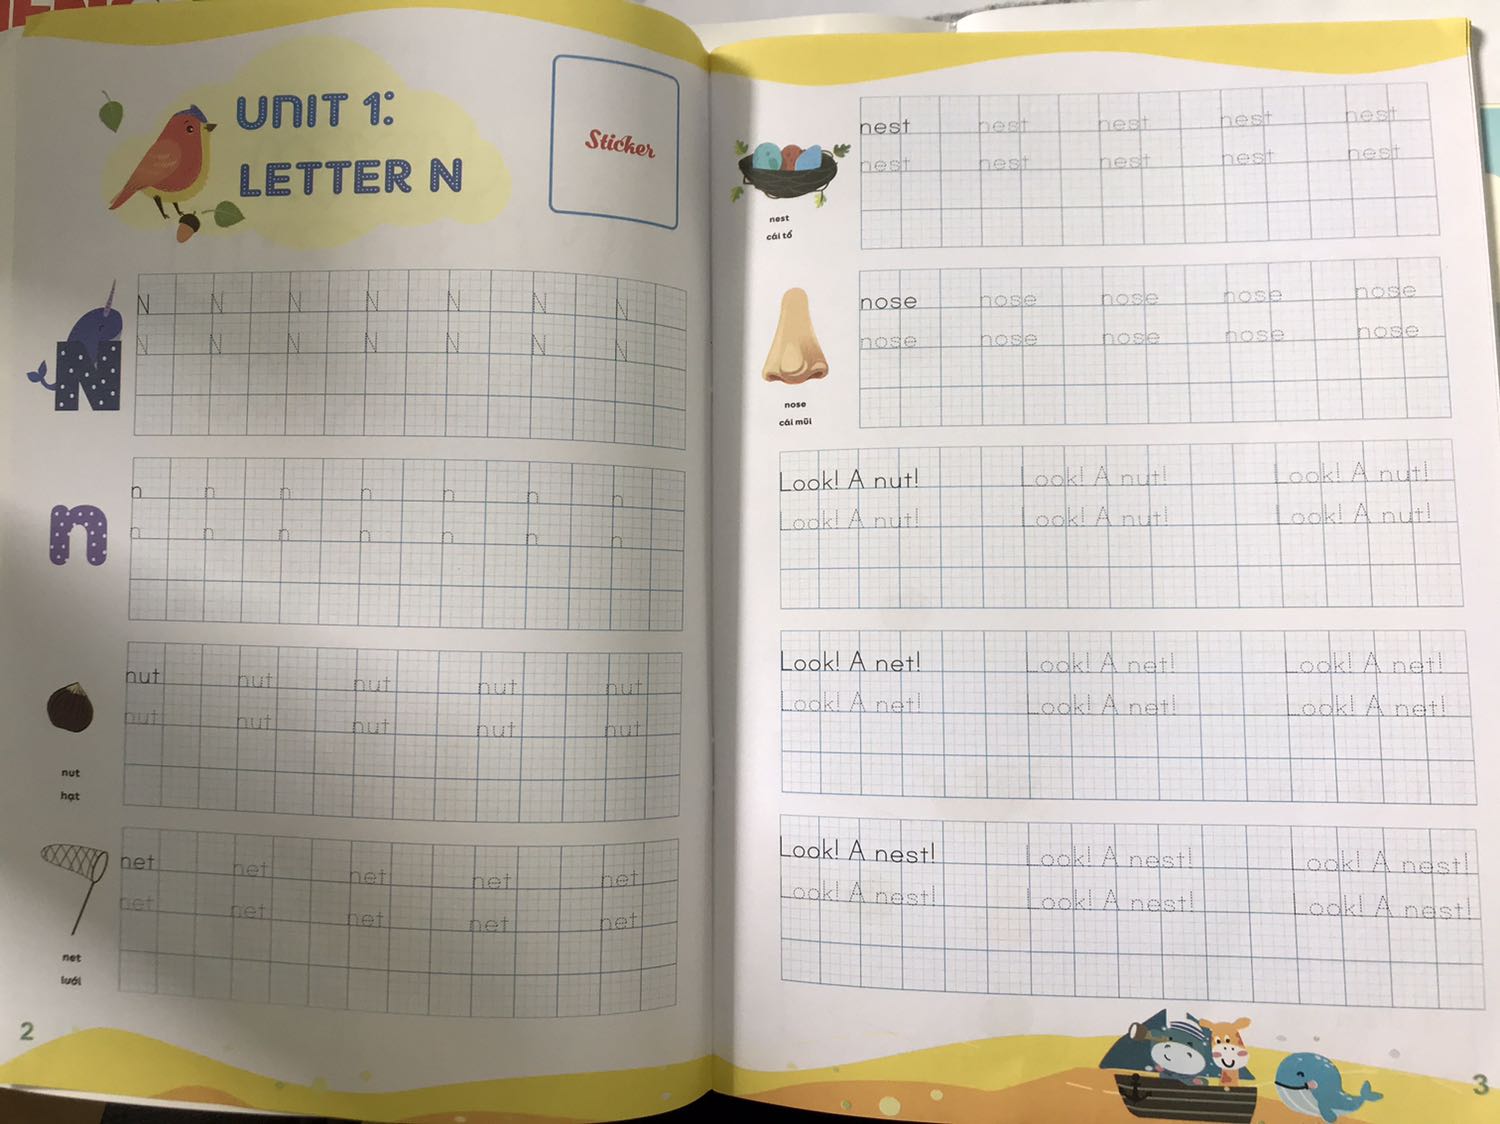 UNIT 1:
LETTER N
Sticker
N N N N N N N
N N N N N N N
n n n n n n n
n n n n n n n
nut nut nut nut nut
nut nut nut nut nut
nut
hạt
net net net net net
net net net net net
net
lưới
2
nest nest nest nest nest
nest nest nest nest nest
nest
cái tổ
nose nose nose nose nose
nose nose nose nose nose
nose
cái mũi
Look! A nut! Look! A nut! Look! A nut!
Look! A nut! Look! A nut! Look! A nut!
Look! A net! Look! A net! Look! A net!
Look! A net! Look! A net! Look! A net!
Look! A nest! Look! A nest! Look! A nest!
Look! A nest! Look! A nest! Look! A nest!
3